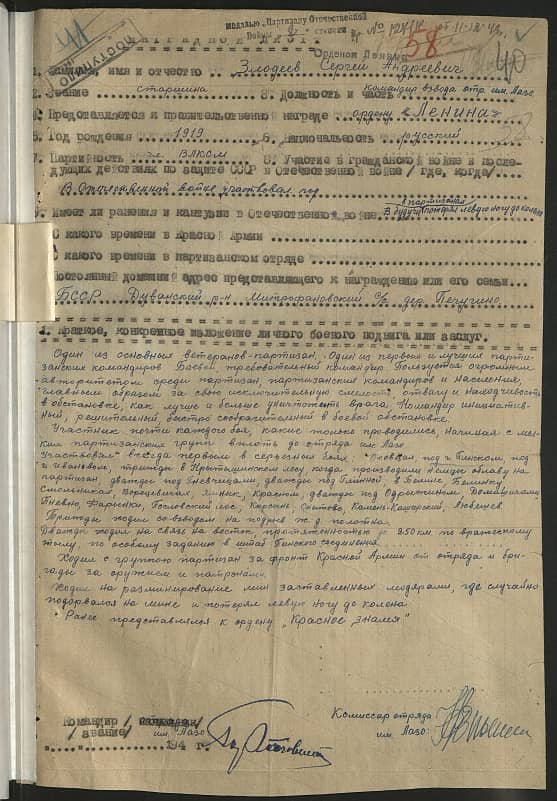 Медалью "Партизану Отечественной
Войны 2 степени
№ 124/н от 11.12.43
41
ПОСТУПИЛО
НАГРАДНОЙ ЛИСТ
58
40
Орденом Ленина
1. Фамилия, имя и отчество .. Злодеев Сергей Андреевич
2. Звание старшина 3. Должность и часть командир взвода отр. им. Лазо
4. Представляется к правительственной награде .. ордену "Ленина"
5. Год рождения 1919 6. Национальность русский
7. Партийность чл. ВЛКСМ 8. Участие в гражданской войне и после-
дующих действиях по защите СССР и Отечественной войне /где, когда/
В Отечественной войне участвовал
9. Имеет ли ранения и контузии в Отечественной войне
в партизанах
потерял левую ногу до колена
С какого времени в Красной Армии
С какого времени в партизанском отряде
Постоянный домашний адрес представляемого к награждению или его семьи
БССР Дуванский р-н Митрофановский с/с дер. Печугино
1. Краткое, конкретное изложение личного боевого подвига или заслуг.
Один из основных ветеранов-партизан. Один из первых и лучших парти-
занских командиров. Боевой, требовательный командир. Пользуется огромным
авторитетом среди партизан, партизанских командиров и населения,
главным образом за свою исключительную смелость, отвагу и находчивость
в обстановке, как лучше и больше уничтожить врага. Командир инициатив-
ный, решительный, быстро сообразительный в боевой обстановке.
Участник почти каждого боя, какие только проводились, начиная с мел-
ких партизанских групп вплоть до отряда им. Лазо
Участвовал всегда первым в серьезных боях: под г. Пинском, под
г. Ивановом, трижды в лесу, когда производили немцы облаву на
партизан, дважды под Гневчицами, дважды под Глинной, в
Смольниках, Ворцевичах, Яжник, Красном, дважды под Одрыжином,
Гневно, лес, Камень-Каширский, Любешев
Трижды ходил со взводом на подрыв ж.д. полотна.
Дважды ходил на связь на восток, протяженностью до 250 км по вражескому
тылу, по особому заданию в штаб Пинского соединения.
Ходил с группою партизан за фронт Красной Армии от отряда и бри-
гады за оружием и патронами.
Ходил на разминирование мин заставленных мадярами, где случайно
подорвался на мине и потерял левую ногу до колена.
Ранее представлялся к ордену "Красное знамя"
Командир
/звание/ им. Лазо
194 г.
Комиссар отряда
им. Лазо: